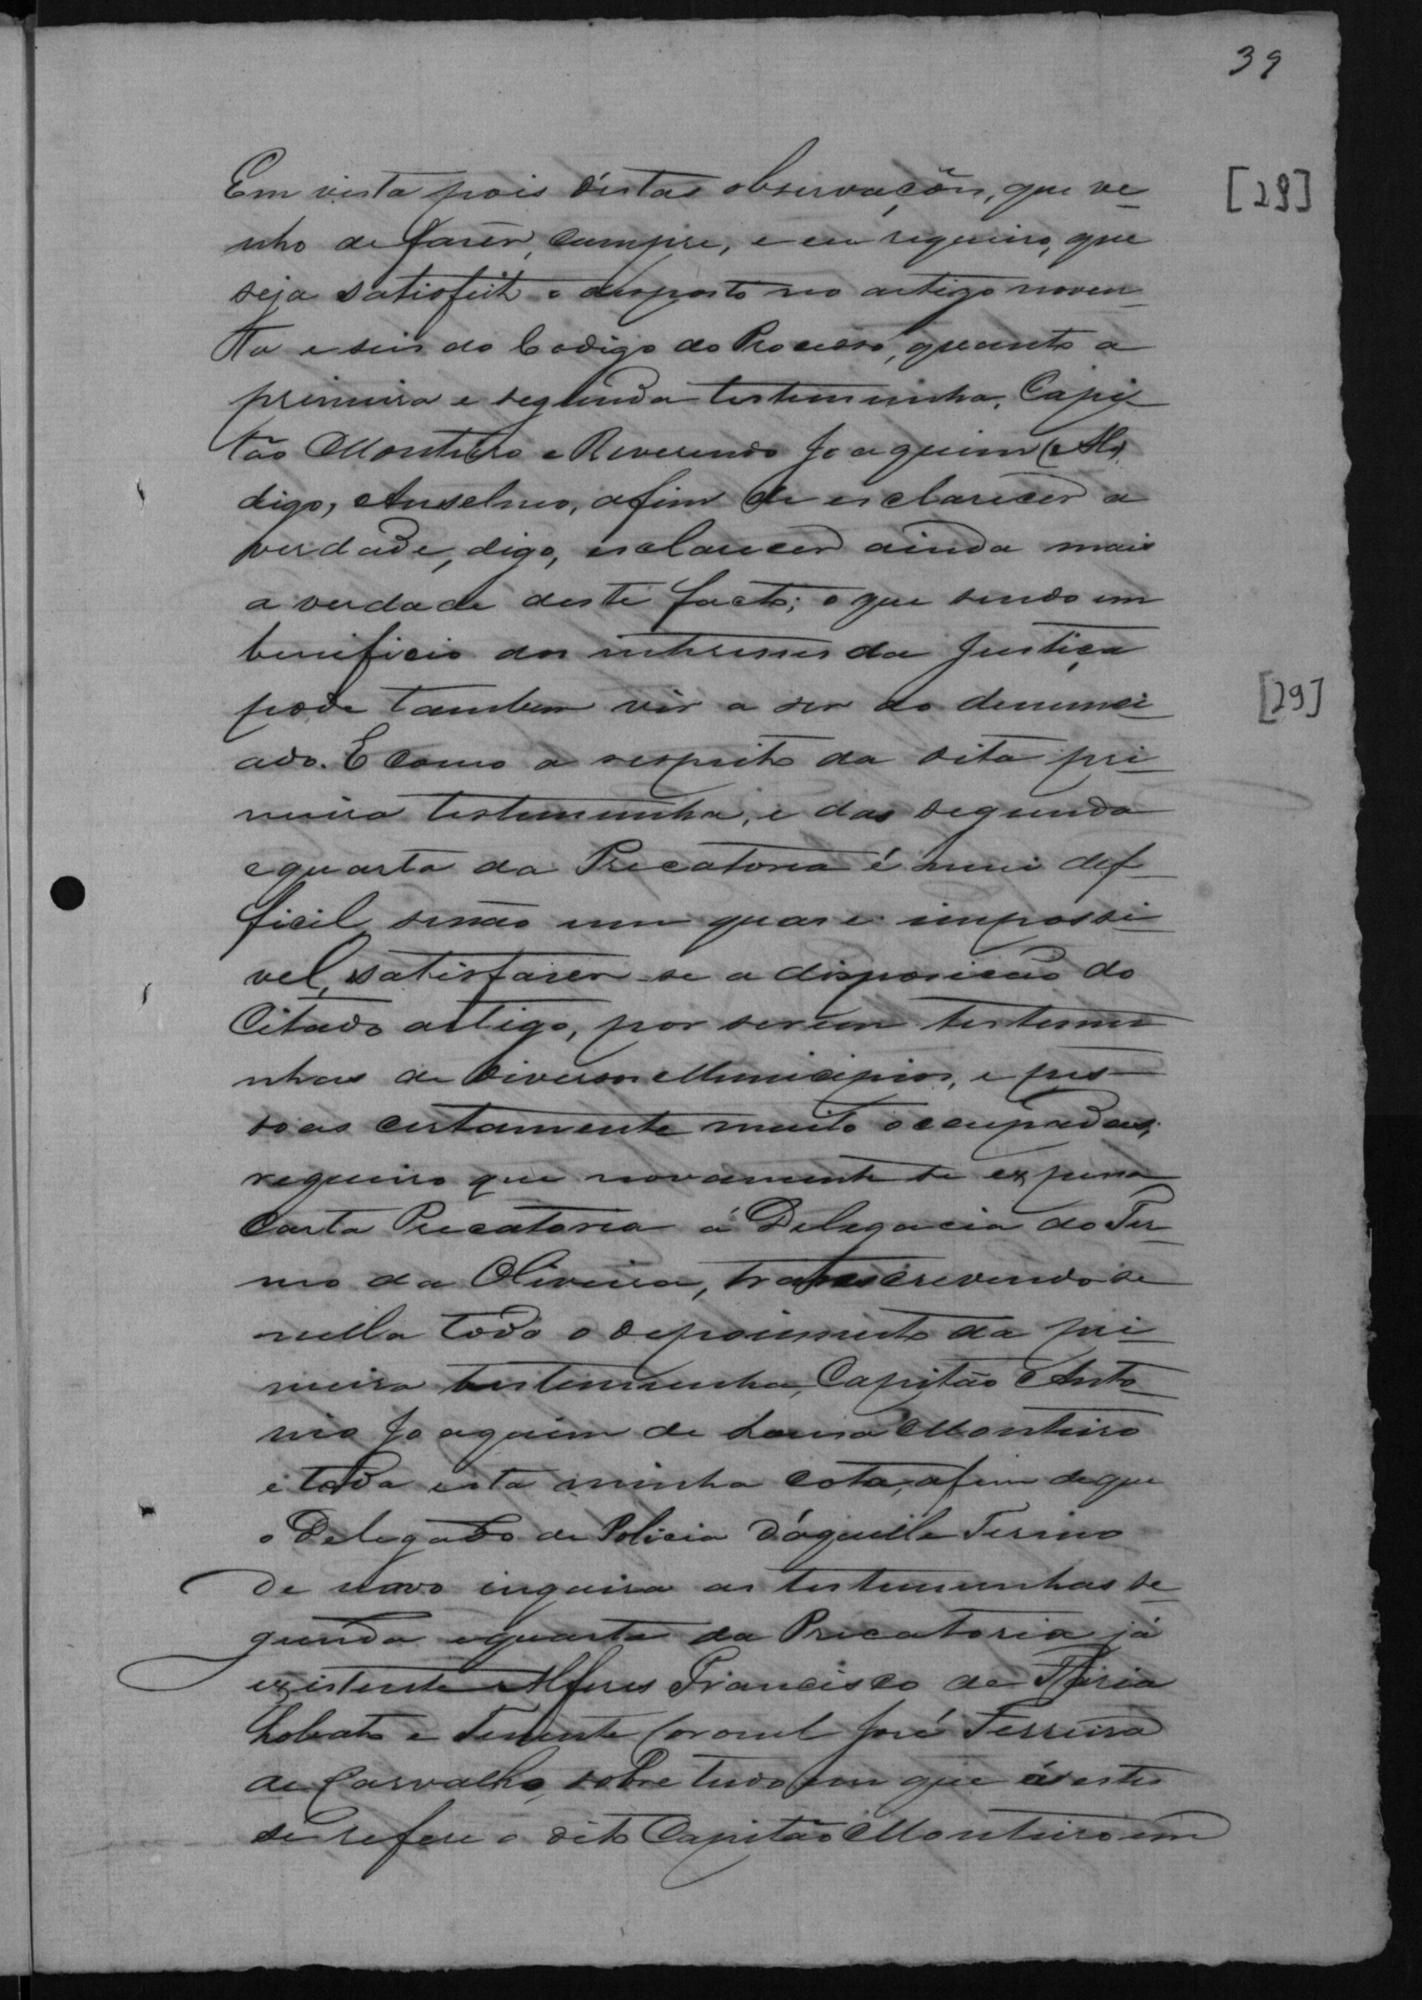 39
[29]
Em vista pois d'estas observações, que ve-
nho de faser, cumpre, e eu requeiro, que
seja satisfeito o disposto no artigo noven-
ta e seis do Codigo do Processo, quanto a
primeira e segunda testemunha, Capi-
tão Monteiro e Reverendo Joaquim
digo, Anselmo, afim de esclarecer a
verdade, digo, esclarecer ainda mais
a verdade deste facto; o que sendo em
beneficio dos interesses da Justiça
pode tambem vir a ser do denunci-
[29]
ado. E como a respeito da dita pri-
meira testemunha, e das segunda
e quarta da Precatoria é mui def-
ficil, senão um quase impossi-
vel, satisfaser-se a disposição do
Citado artigo, por serem testemu-
nhas de diversos Municipios, e pes-
soas certamente muito occupadas,
requeiro que novamente se expessa
Carta Precatoria á Delegacia do Ter-
mo da Oliveira, transcrevendo-se
nella todo o depoimento da pri-
meira testemunha, Capitão Anto-
nio Joaquim de Monteiro
e toda esta minha cota, afim de que
o Delegado de Policia d'aquelle Termo
de novo inquira as testemunhas se-
gunda e quarta da Precatoria já
existente Alferes Francisco de Faria
Lobato e Tenente Coronel José Ferreira
de Carvalho, sobre tudo em que á estes
se refere o dito Capitão Monteiro em